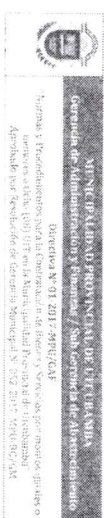 MUNICIPALIDAD PROVINCIAL DE UTCUBAMBA
Gerencia de Administración y Finanzas / Sub Gerencia de Abastecimiento
Directiva Nº 01-2017-MPU/GAF
Normas y Procedimientos para la Contratación de Bienes y Servicios por montos iguales o
menores a Ocho (08) UIT en la Municipalidad Provincial de Utcubamba
Aprobado por Resolución de Gerencia Municipal Nº